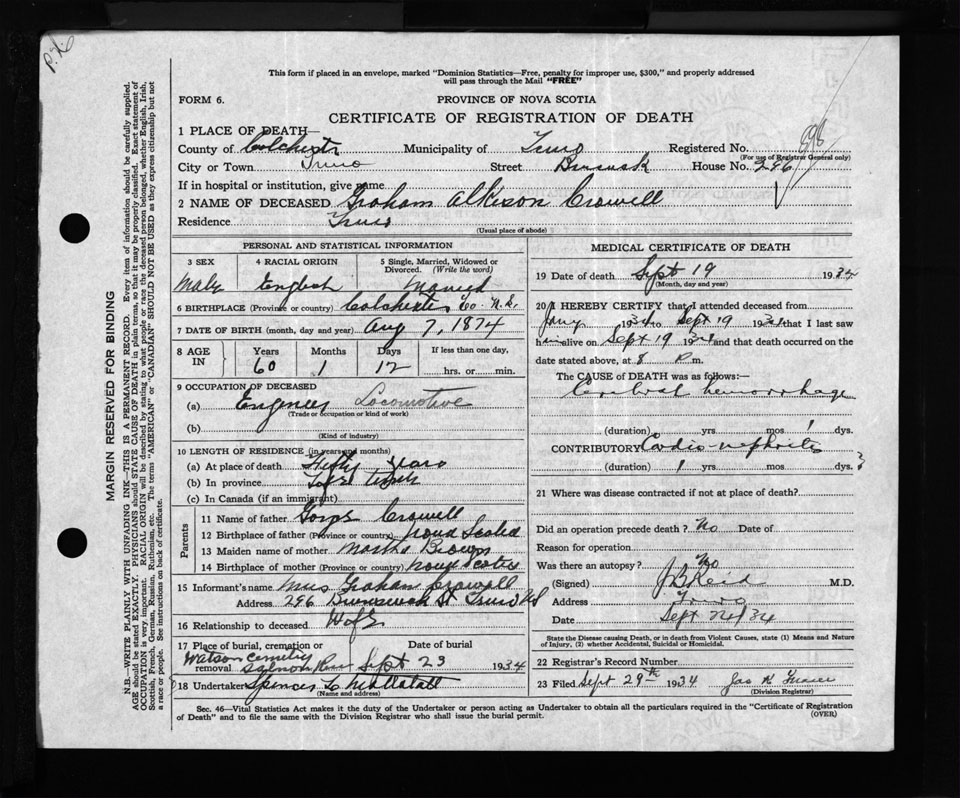 P.L.
This form if placed in an envelope, marked "Dominion Statistics—Free, penalty for improper use, $300," and properly addressed
will pass through the Mail "FREE"
FORM 6.
PROVINCE OF NOVA SCOTIA
CERTIFICATE OF REGISTRATION OF DEATH
1 PLACE OF DEATH—
County of Colchester Municipality of Truro Registered No. 898
(For use of Registrar General only)
City or Town Truro Street Brunswick House No. 296
If in hospital or institution, give name
2 NAME OF DECEASED Graham Crowell
Residence Truro
(Usual place of abode)
PERSONAL AND STATISTICAL INFORMATION
3 SEX 4 RACIAL ORIGIN 5 Single, Married, Widowed or
Divorced. (Write the word)
Male English Married
6 BIRTHPLACE (Province or country) Colchester Co. N.S.
7 DATE OF BIRTH (month, day and year) Aug 7, 1874
8 AGE IN Years Months Days If less than one day,
60 1 12 hrs. or min.
9 OCCUPATION OF DECEASED
(a) Engineer Locomotive
(Trade or occupation or kind of work)
(b)
(Kind of industry)
10 LENGTH OF RESIDENCE (in years and months)
(a) At place of death Fifty years
(b) In province
(c) In Canada (if an immigrant)
Parents
11 Name of father Crowell
12 Birthplace of father (Province or country) Nova Scotia
13 Maiden name of mother
14 Birthplace of mother (Province or country) Nova Scotia
15 Informant's name Mrs Graham Crowell
Address 296 Brunswick St Truro NS
16 Relationship to deceased Wife
17 Place of burial, cremation or removal Date of burial
Watson Cemetery
Salmon River Sept 23 1934
18 Undertaker Spencer
(Name and address)
MEDICAL CERTIFICATE OF DEATH
19 Date of death Sept 19 1934
(Month, day and year)
20 I HEREBY CERTIFY that I attended deceased from
Jany 1934 to Sept 19 1934 that I last saw
him alive on Sept 19 1934 and that death occurred on the
date stated above, at 8 P m.
The CAUSE OF DEATH was as follows:—
Cerebral hemorrhage
(duration) yrs. mos. 1 dys.
CONTRIBUTORY Cardio-nephritis
(duration) 1 yrs. mos. dys.
21 Where was disease contracted if not at place of death?
Did an operation precede death? No Date of
Reason for operation
Was there an autopsy? No
(Signed) J B Reid M.D.
Address Truro
Date Sept 24/34
State the Disease causing Death, or in death from Violent Causes, state (1) Means and Nature
of Injury, (2) whether Accidental, Suicidal or Homicidal.
22 Registrar's Record Number
23 Filed Sept 29th 1934 Jas
(Division Registrar)
Sec. 46—Vital Statistics Act makes it the duty of the Undertaker or person acting as Undertaker to obtain all the particulars required in the "Certificate of Registration
of Death" and to file the same with the Division Registrar who shall issue the burial permit. (OVER)
MARGIN RESERVED FOR BINDING
N.B.—WRITE PLAINLY WITH UNFADING INK—THIS IS A PERMANENT RECORD. Every item of information should be carefully supplied.
AGE should be stated EXACTLY. PHYSICIANS should STATE CAUSE OF DEATH in plain terms, so that it may be properly classified. Exact statement of
OCCUPATION is very important. RACIAL ORIGIN will be described by stating to what people or race the deceased person belonged, whether English, Irish,
Scottish, French, German, Russian, Ruthenian, etc. The terms "AMERICAN" or "CANADIAN" SHOULD NOT BE USED as they express citizenship but not
a race or people. See instructions on back of certificate.